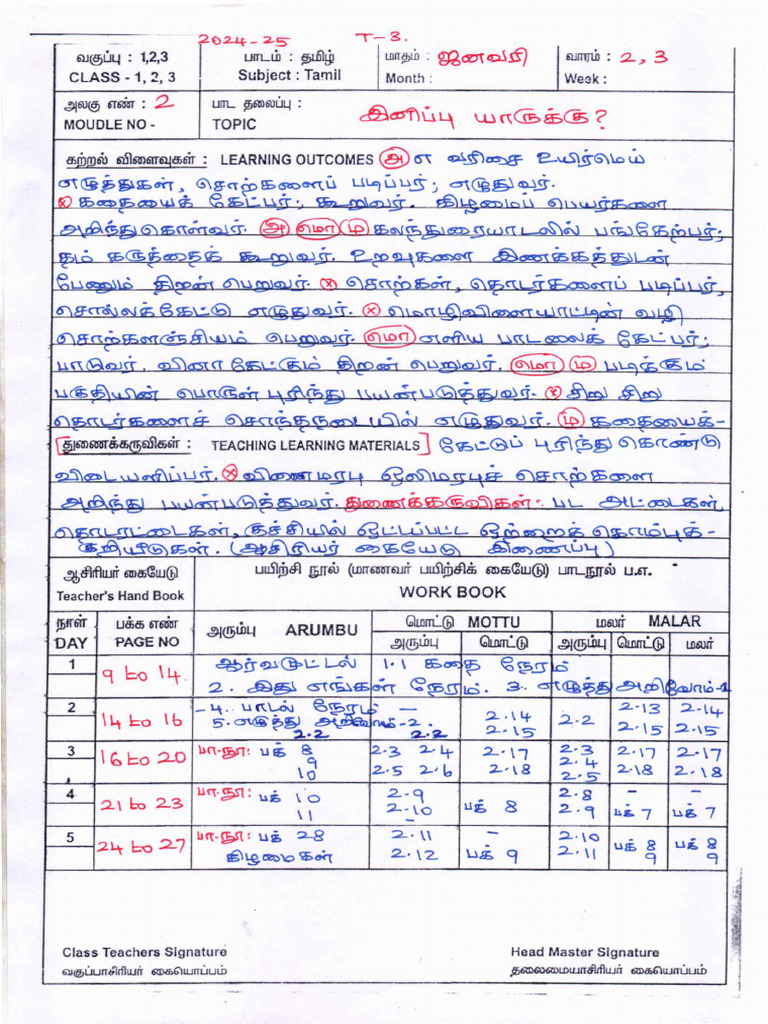 2024-25 T-3.
வகுப்பு : 1,2,3 பாடம் : தமிழ் மாதம் : ஜனவரி வாரம் : 2, 3
CLASS - 1, 2, 3 Subject : Tamil Month : Week :
அலகு எண் : 2 பாட தலைப்பு :
MOUDLE NO - TOPIC இனிப்பு யாருக்கு?
கற்றல் விளைவுகள் : LEARNING OUTCOMES அ எ வரிசை உயிர்மெய்
எழுத்துகள், சொற்களைப் படிப்பர்; எழுதுவர்.
கதையைக் கேட்பர்; கூறுவர். கிழமைப் பெயர்களை
அறிந்துகொள்வர். அ மொ ம கலந்துரையாடலில் பங்கேற்பர்;
தம் கருத்தைக் கூறுவர். உறவுகளை இணக்கத்துடன்
பேணும் திறன் பெறுவர். சொற்கள், தொடர்களைப் படிப்பர்,
சொல்லக்கேட்டு எழுதுவர். மொழிவிளையாட்டின் வழி
சொற்களஞ்சியம் பெறுவர். மொ எளிய பாடலைக் கேட்பர்;
பாடுவர். வினா கேட்கும் திறன் பெறுவர். மொ ம படிக்கும்
பகுதியின் பொருள் புரிந்து பயன்படுத்துவர். சிறு சிறு
தொடர்களைச் சொந்தநடையில் எழுதுவர். ம கதையைக்-
[துணைக்கருவிகள் : TEACHING LEARNING MATERIALS] கேட்டுப் புரிந்து கொண்டு
விடையளிப்பர். வினைமரபு ஒலிமரபுச் சொற்களை
அறிந்து பயன்படுத்துவர். துணைக்கருவிகள்:- பட அட்டைகள்,
தொடரட்டைகள், குச்சியில் ஒட்டப்பட்ட ஒற்றைக் கொம்புக்-
குறியீடுகள். (ஆசிரியர் கையேடு இணைப்பு)
ஆசிரியர் கையேடு பயிற்சி நூல் (மாணவர் பயிற்சிக் கையேடு) பாடநூல் ப.எ.
Teacher's Hand Book WORK BOOK
நாள் பக்க எண் அரும்பு ARUMBU மொட்டு MOTTU மலர் MALAR
DAY PAGE NO அரும்பு மொட்டு அரும்பு மொட்டு மலர்
1 9 to 14 ஆர்வமூட்டல் 1.1 கதை நேரம்
2. இது எங்கள் நேரம். 3. எழுத்து அறிவோம்-1
2 14 to 16 -4. பாடல் நேரம் - 2.14 2.2 2.13 2.14
5. எழுத்து அறிவோம்-2. 2.15 2.15 2.15
2.2 2.2
3 16 to 20 பா.நூ: பக் 8 2.3 2.4 2.17 2.3 2.17 2.17
9 2.4
10 2.5 2.6 2.18 2.5 2.18 2.18
4 21 to 23 பா.நூ: பக் 10 2.9 பக் 8 2.8 - -
11 2.10 2.9 பக் 7 பக் 7
5 24 to 27 பா.நூ: பக் 28 2.11 - 2.10 பக் 8 பக் 8
கிழமைகள் 2.12 பக் 9 2.11 9 9
Class Teachers Signature Head Master Signature
வகுப்பாசிரியர் கையொப்பம் தலைமையாசிரியர் கையொப்பம்